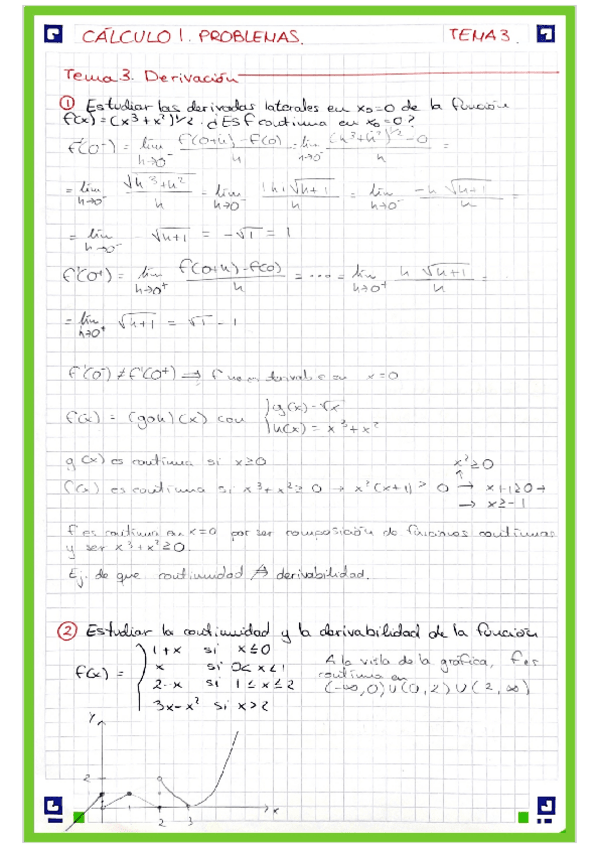 CÁLCULO 1. PROBLEMAS. TEMA 3.
Tema 3. Derivación
① Estudiar las derivadas laterales en x₀=0 de la función
f(x)=(x³+x²)^1/2. ¿Es f continua en x₀=0?
f'(0⁻) = lím h→0⁻ f(0+h)-f(0) / h = lím h→0⁻ (h³+h²)^1/2 - 0 / h =
= lím h→0⁻ √h³+h² / h = lím h→0⁻ |h|√h+1 / h = lím h→0⁻ -h √h+1 / h =
= lím h→0⁻ -√h+1 = -√1 = 1
f'(0⁺) = lím h→0⁺ f(0+h)-f(0) / h = ... = lím h→0⁺ h √h+1 / h =
= lím h→0⁺ √h+1 = √1 - 1
f'(0⁻) ≠ f'(0⁺) → f no es derivable en x=0
f(x) = (g∘h)(x) con { g(x)=√x
h(x) = x³+x²
g(x) es continua si x≥0 x²≥0
f(x) es continua si x³+x² ≥ 0 → x²(x+1) ≥ 0 → x+1≥0 →
→ x≥-1
f es continua en x=0 por ser composición de funciones continuas
y ser x³+x²≥0.
Ej. de que continuidad ⇏ derivabilidad.
② Estudiar la continuidad y la derivabilidad de la función
f(x) = { 1+x si x≤0
x si 0<x<1
2-x si 1≤x≤2
3x-x² si x>2
A la vista de la gráfica, f es
continua en
(-∞,0)∪(0,2)∪(2,∞)
Y
2
1 2 3 x